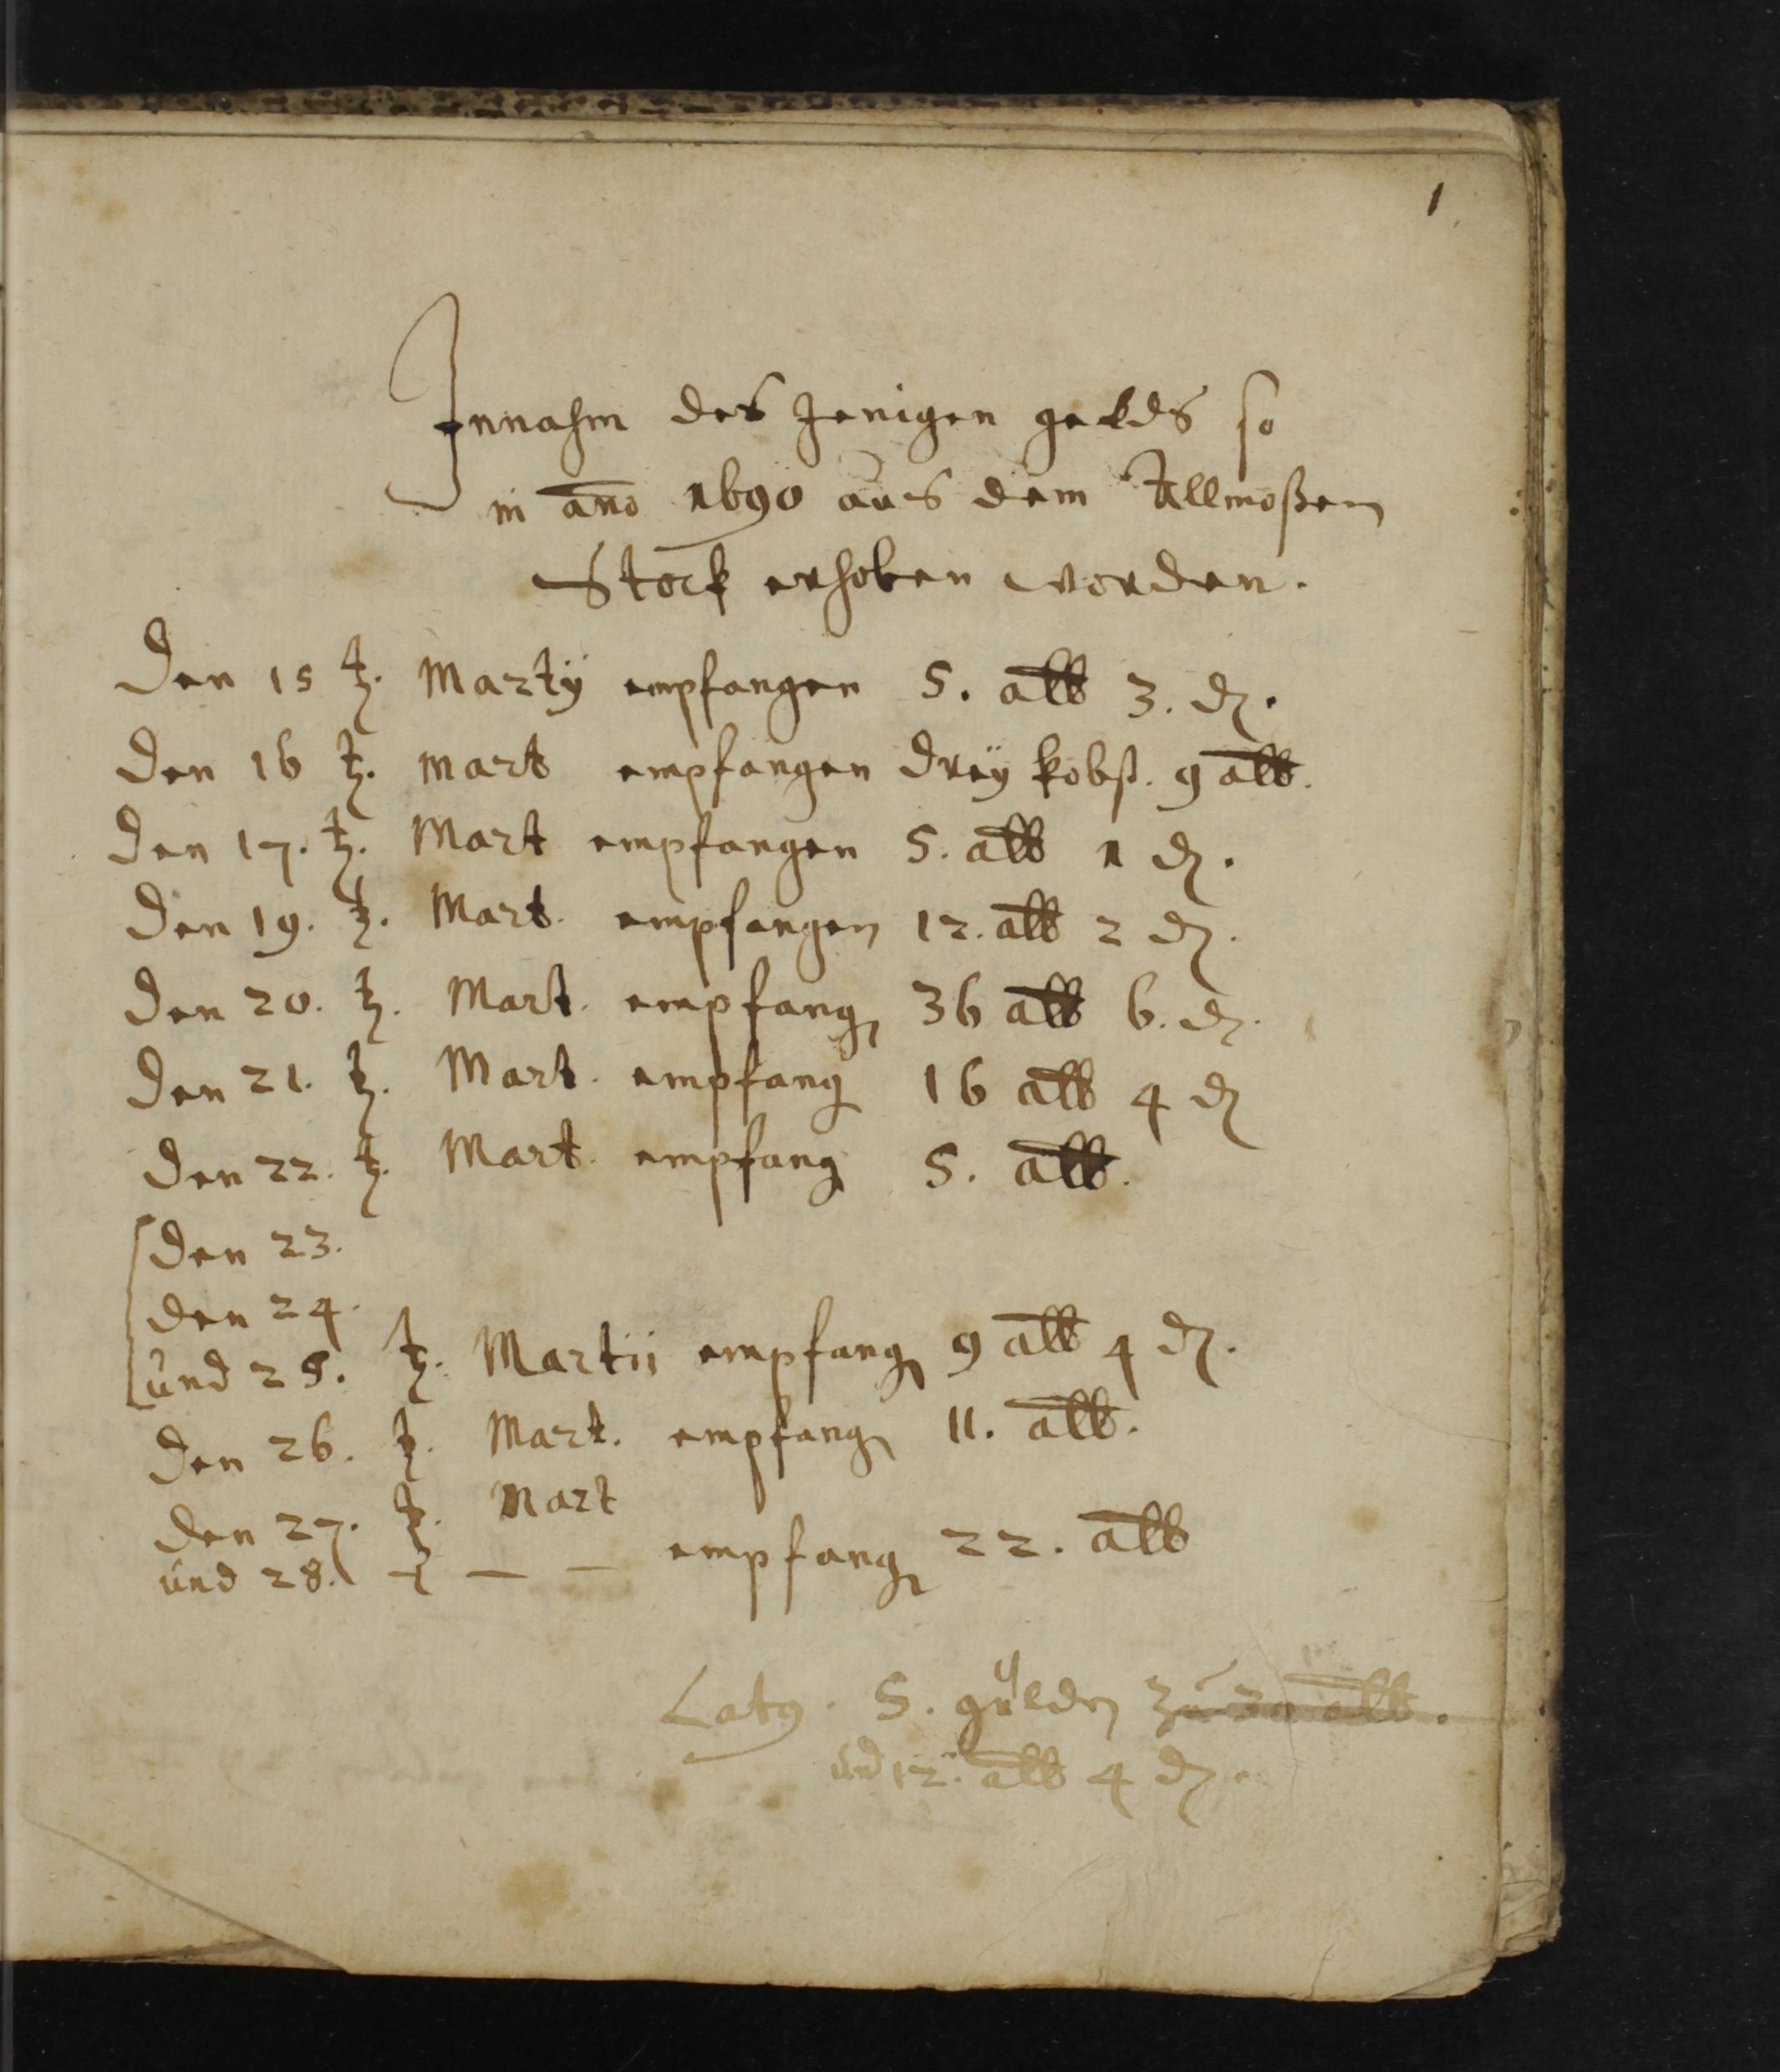 1
Innahm des Jenigen gelds so
in ano 1690 aus dem Allmoßen
Stock erhoben worden.
Den 15 t. Martÿ empfangen 5. alb 3. d.
Den 16 t. mart empfangen dreÿ kobst. 9 alb.
Den 17. t. Mart empfangen 5. alb 1 d.
Den 19. t. Mart. empfangen 12. alb 2 d.
Den 20. t. Mart. empfang 36 alb 6. d.
Den 21. t. Mart. empfang 16 alb 4 d
Den 22. t. Mart. empfang 5. alb.
Den 23.
Den 24.
und 25. t. Martii empfang 9 alb 4 d.
Den 26. t. Mart. empfang 11. alb.
Den 27. t. Mart
und 28. t — — empfang 22. alb
Latg. 5. gülden zu 30 alb.
und 12. alb 4 d.